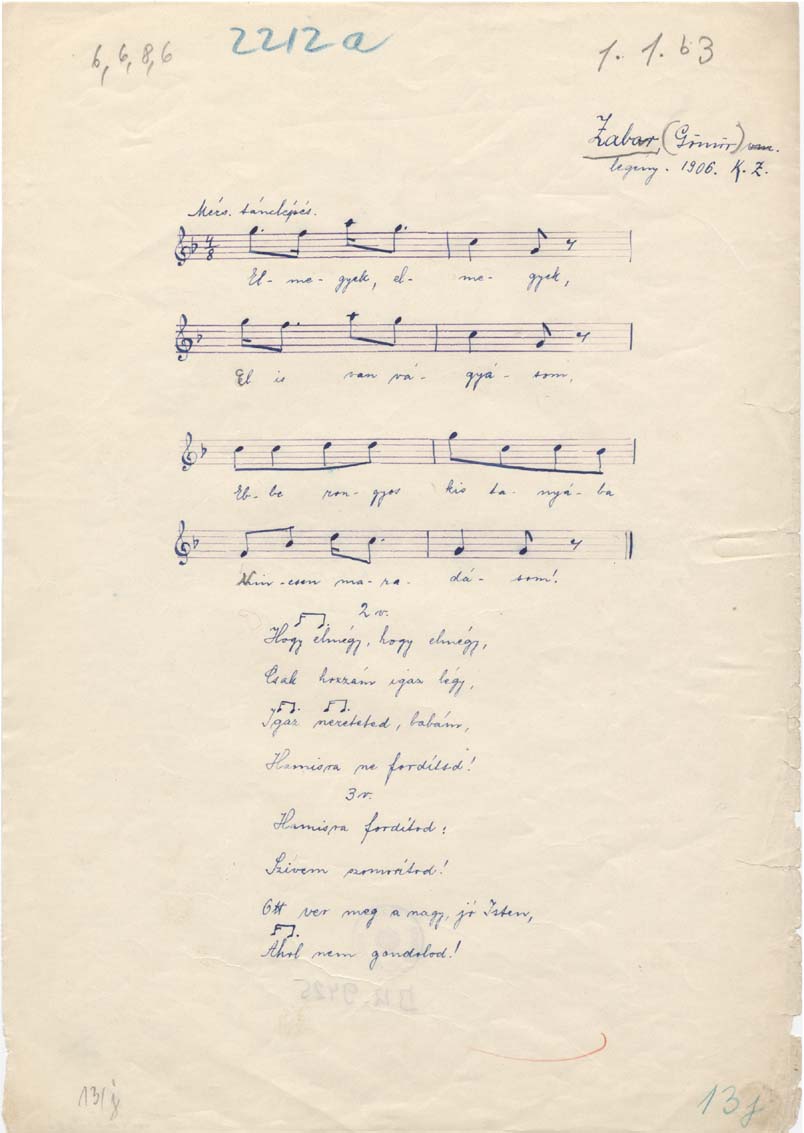 6, 6, 8, 6
2212a
1. 1. 63
Zabar, (Gömör) vm.
legény. 1906. K. Z.
Mérs. tánclépés.
4/8
El- me- gyek, el- me- gyek,
El is van vá- gyá- som,
Eb- be ron- gyos kis ta- nyá- ba
Nin- csen ma- ra- dá- som!
2 v.
Hogy elmégy, hogy elmégy,
Csak hozzám igaz légy,
Igaz szereteted, babám,
Hamisra ne fordítsd!
3 v.
Hamisra fordítod:
Szivem szomorítod!
Ott ver meg a nagy, jó Isten,
Ahol nem gondolod!
13/j
13j